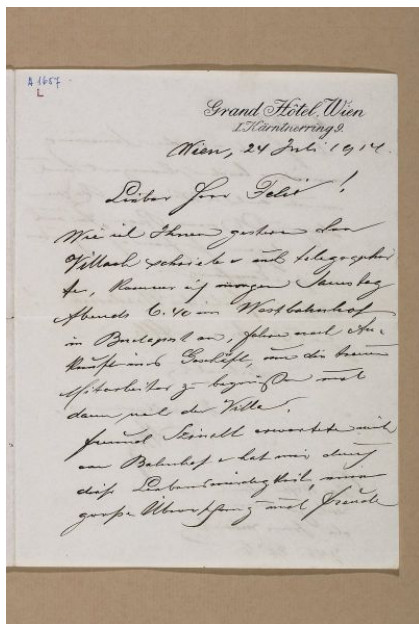 A 1657
L
Grand Hôtel, Wien
I. Kärntnerring 9.
Wien, 24 Juli 1914.
Lieber Herr Felix!
Wie ich Ihnen gestern von
Villach schrieb & auch telegraphir
te, komme ich morgen Samstag
Abends 6.40 im Westbahnhof
in Budapest an, fahre nach An-
kunft ins Geschäft, um die treuen
Mitarbeiter zu begrüßen und
dann nach der Villa.
Freund erwartete mich
am Bahnhof & hat mir durch
diese Liebenswürdigkeit, eine
große Überraschung und Freude